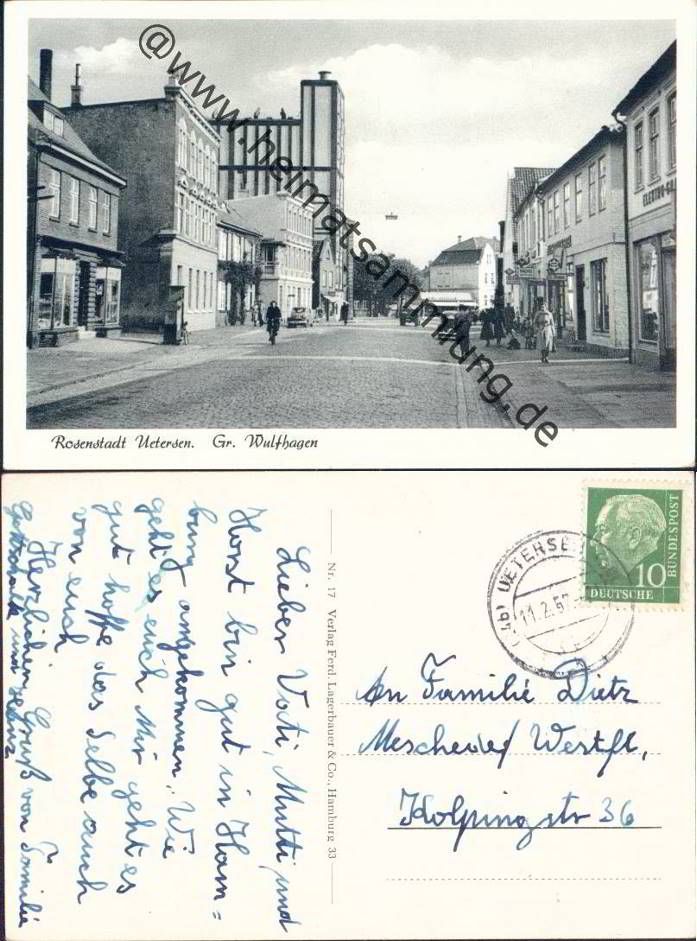 @www.heimatsammlung.de
ELEKTRO-
Rosenstadt Uetersen. Gr. Wulfhagen
Lieber Vati, Mutti und
Horst bin gut in Ham=
burg angekommen. Wie
geht es euch Mir geht es
gut hoffe das Selbe auch
von euch
Herzlichen Gruß von Familie
und Heinz
Nr. 17 Verlag Ferd. Lagerbauer & Co., Hamburg 33
UETERSE
11.2.57
10
DEUTSCHE
BUNDESPOST
An Familie Dietz
Meschede/ Westfl,
Kolpingstr 36